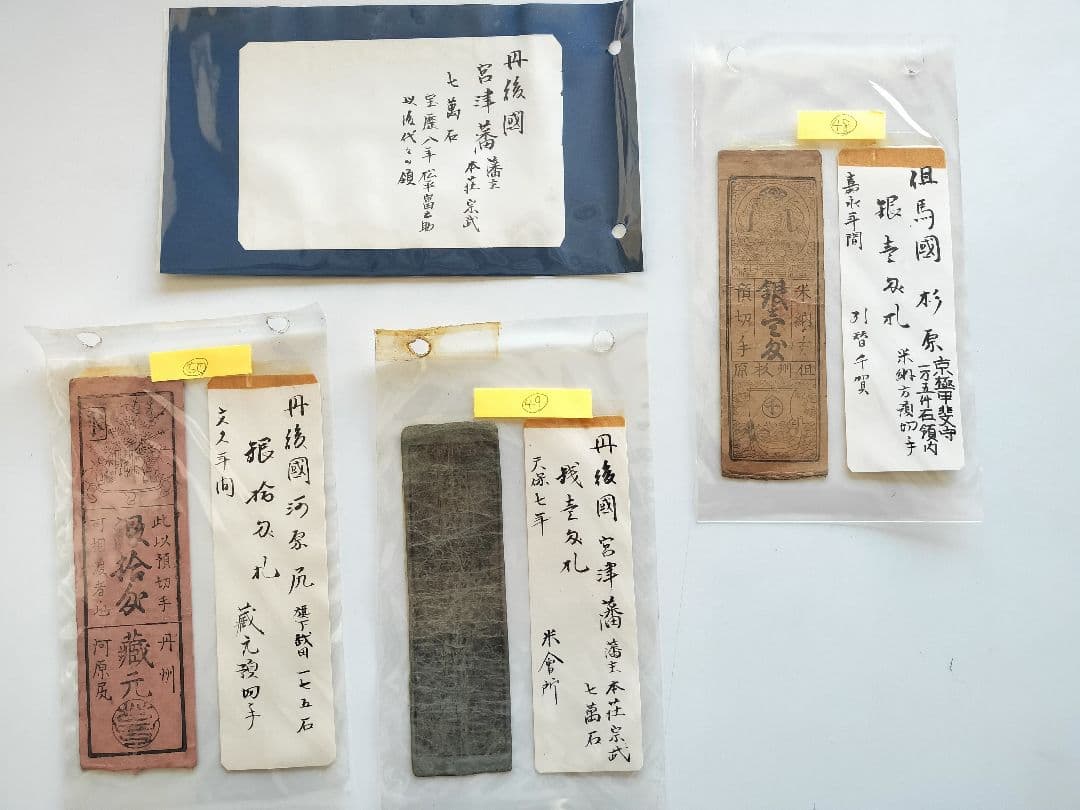 丹後國
宮津藩 藩主 本荘宗武
七萬石
以後代々領
48
但馬國 杉原 京極甲斐守
一万五仟石領内
銀壹匁札 米納方預切手
嘉永年間 引替千賀
米納方
銀壹匁
預切手
但州杉原
50
此以預切手
銀拾匁
丹州
藏元
河原尻
丹後國河原尻 旗下 一七五石
銀拾匁札 藏元預切手
文久年間
49
丹後國 宮津藩 藩主 本荘宗武
七萬石
銭壹匁札 米會所
天保七年